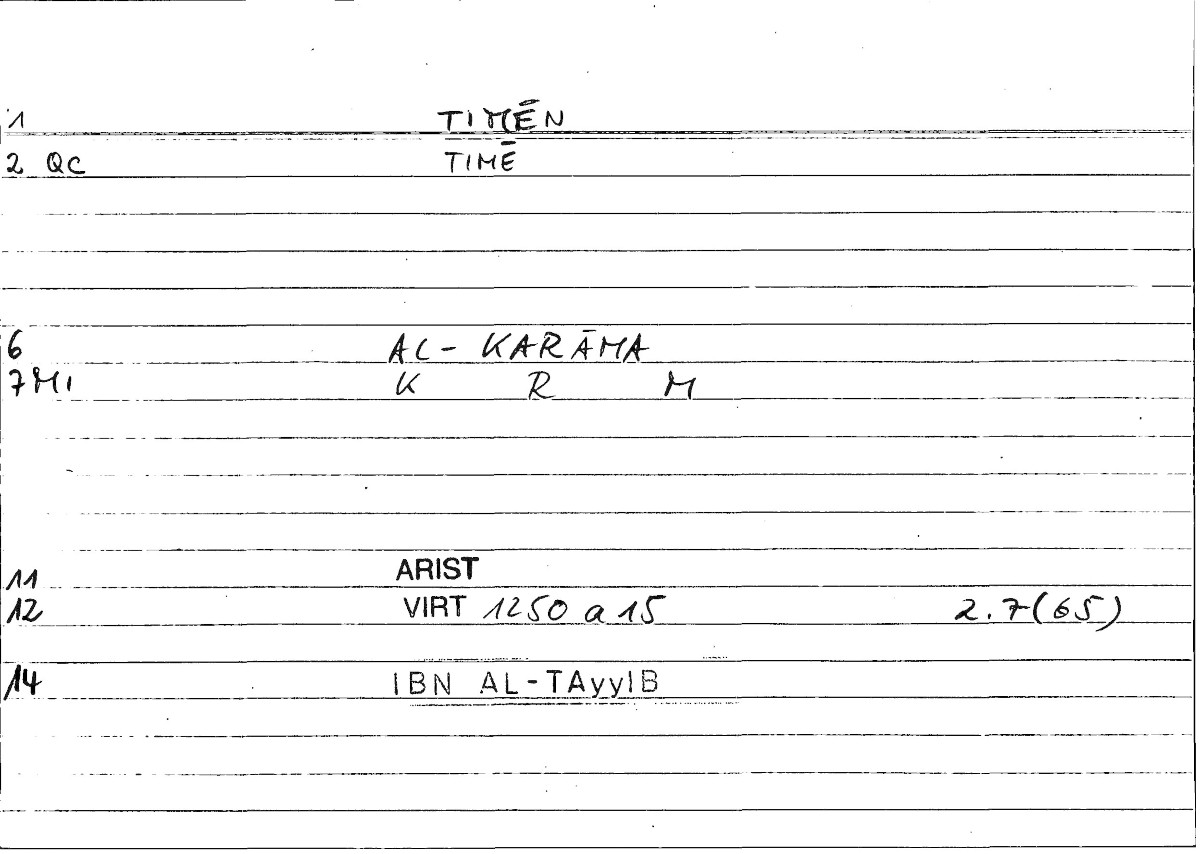 1 TIMĒN
2 QC TIMĒ
6 AL-KARĀMA
7 MI K R M
11 ARIST
12 VIRT 1250 a 15 2.7(65)
14 IBN AL-TAyyIB